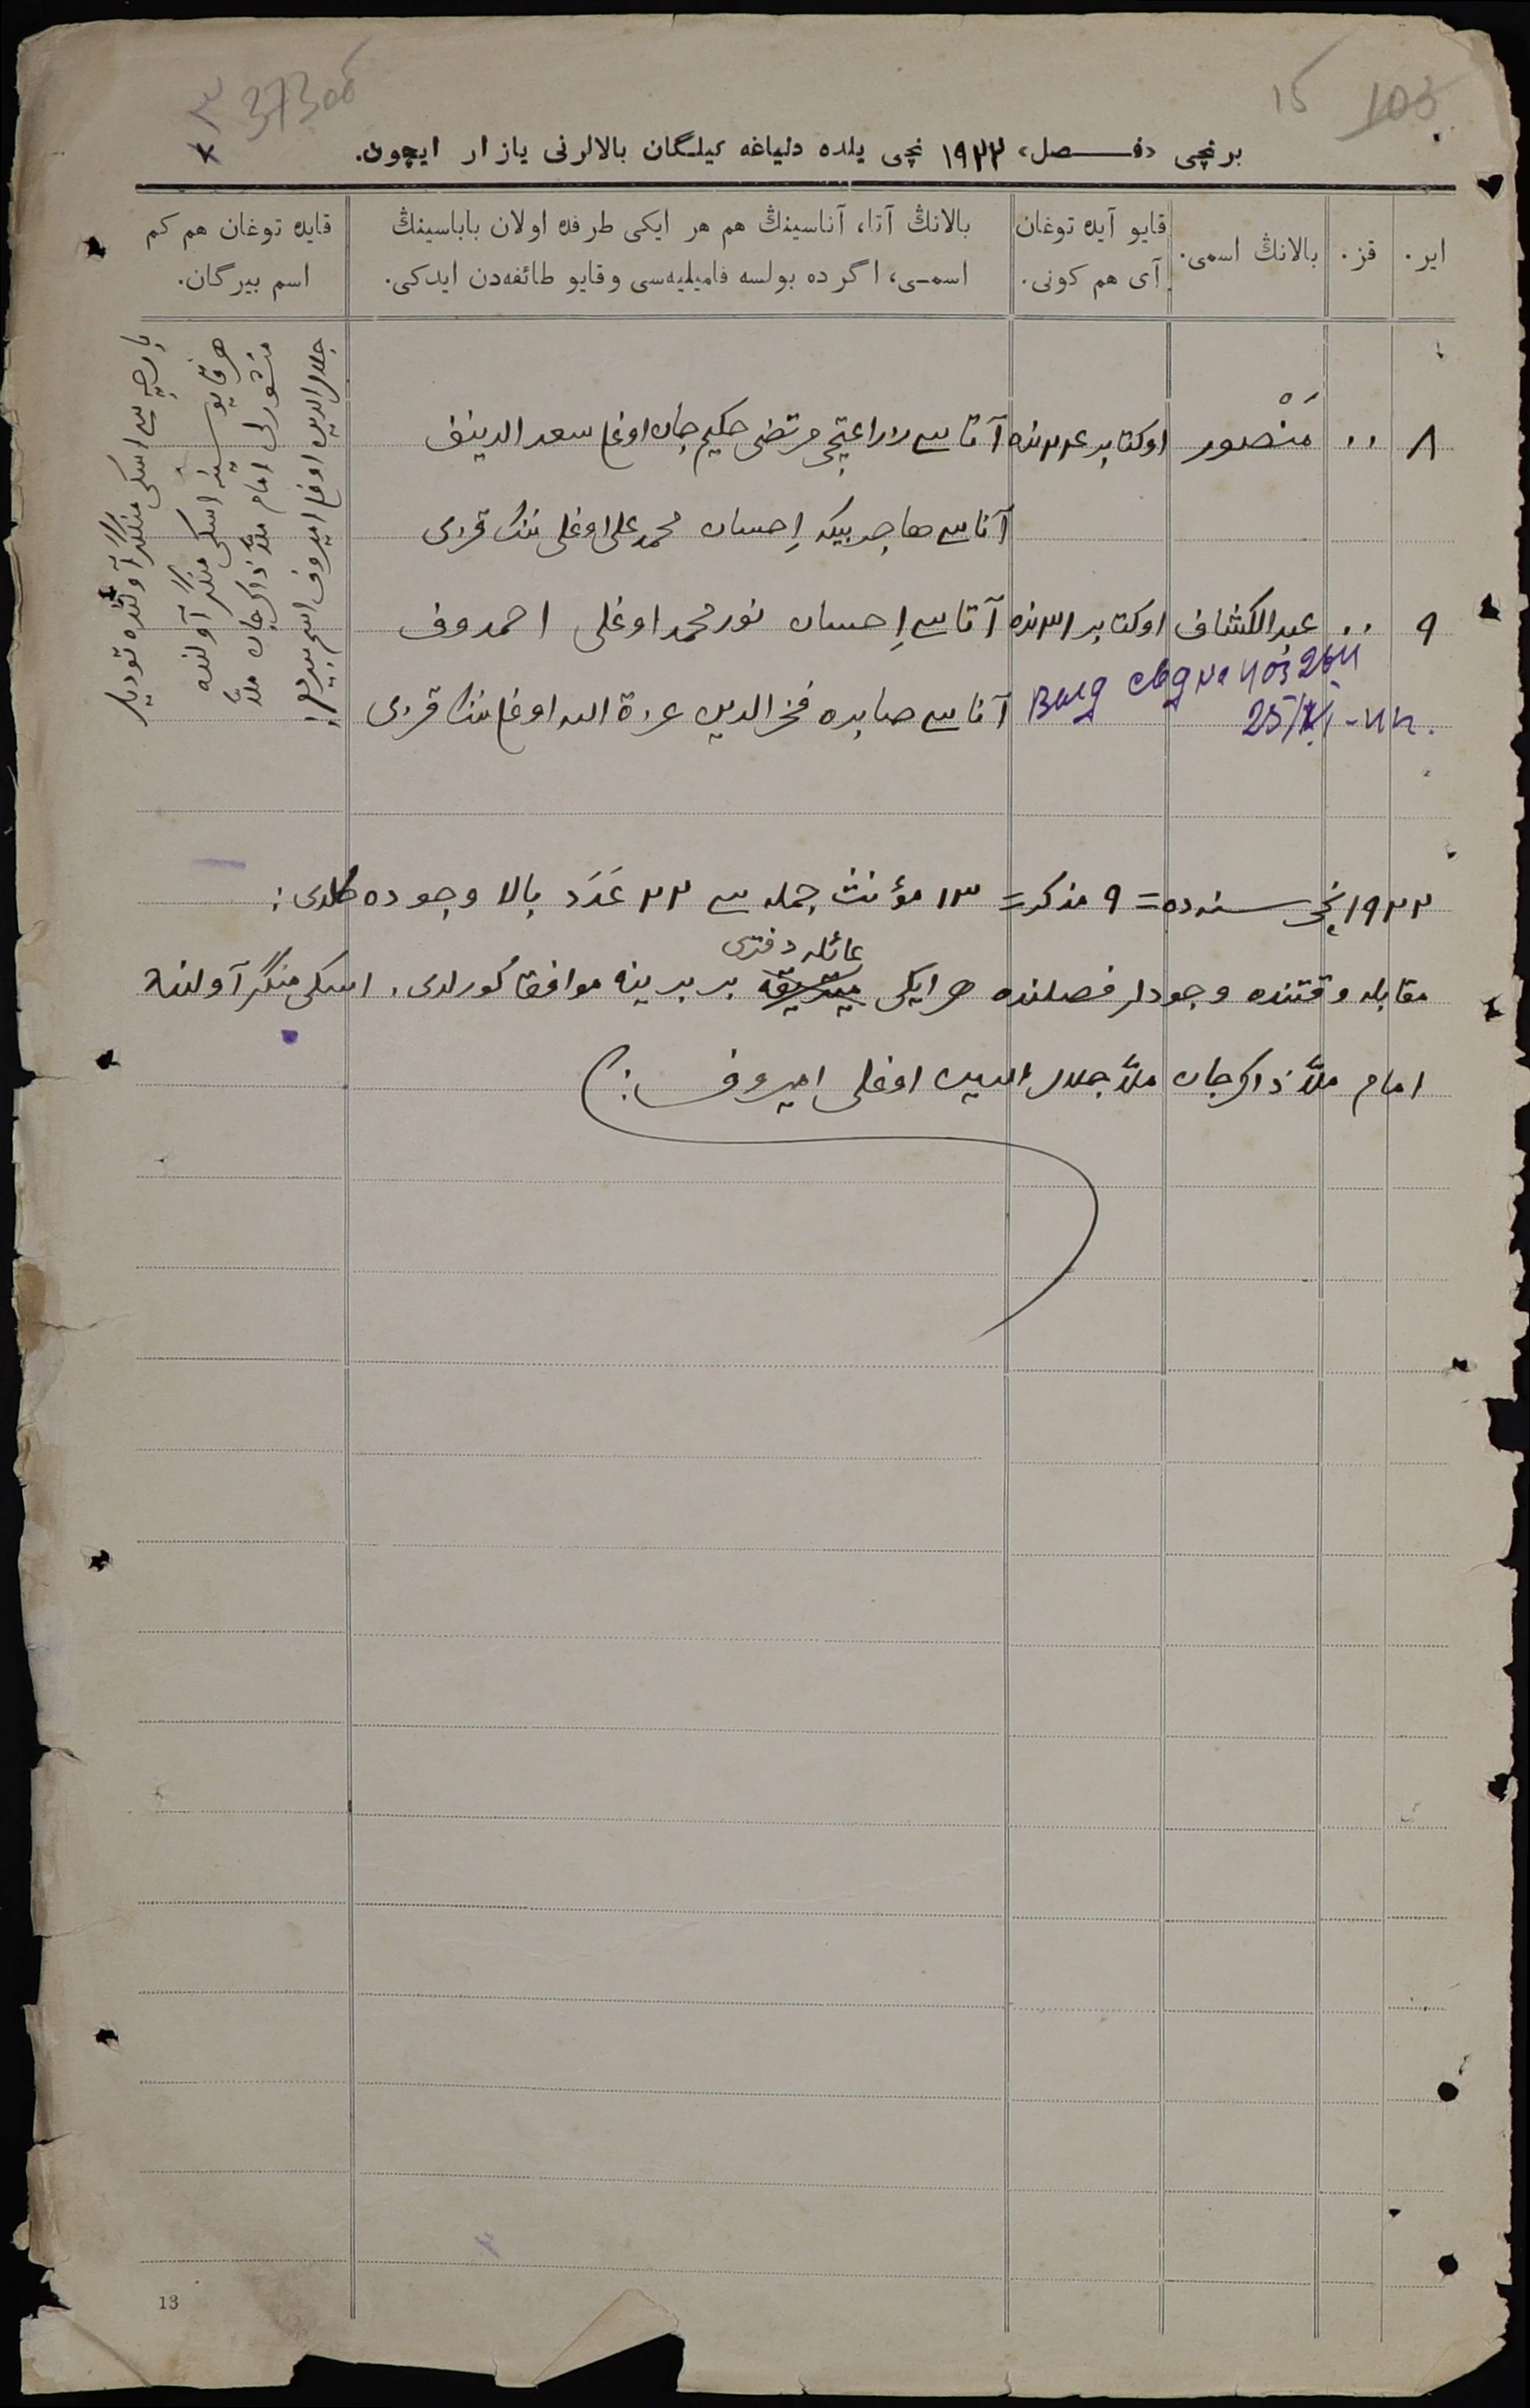 15 103
37306
برنچی «فصل» ۱۹۲۲ نچی یلده دنیاغه کیلگان بالالرنی یازار ایچون.
ایر. قز. بالانڭ اسمی. قایو آیده توغان آی هم كونی. بالانڭ آتا، آناسینڭ هم هر ایكی طرفده اولان باباسینڭ اسمی، اگر ده بولسه فامیلیه‌سی و قایو طائفه‌دن ایدكی. قایده توغان هم كم اسم بیرگان.
۸ ,, منصور اوكتابر ۲۴نده آتاسی مرتضی حكیم جان اوغلی سعدالدینف
آناسی هاجر بیكه احسان محمد علی اوغلی ننڭ قزی
۹ ,, عبدالكشاف اوكتابر ۳۱نده آتاسی احسان نورمحمد اوغلی احمدوف
آناسی صابره فخرالدین عزة الله اوغلی ننڭ قزی
25/XI
بارچه سی اسكی منگر آولنده تودیلر
هر قایوسینه اسكی منگر آولینه
منشورلی امام ملا ذاكرجان ملا
جلال الدین اوغلی امیروف اسم بیردم:
۱۹۲۲ نچی سنه‌ده = ۹ مذكر = ۱۳ مؤنث جمله سی ۲۲ عدد بالا وجوده كلدی:
عائله دفتری
مقابله وقتنده وجودلر فصلنده هر ایكی بر برینه موافقا كورلدی. اسكی منگر آولینه
امام ملا ذاكرجان ملا جلال الدین اوغلی امیروف:
13